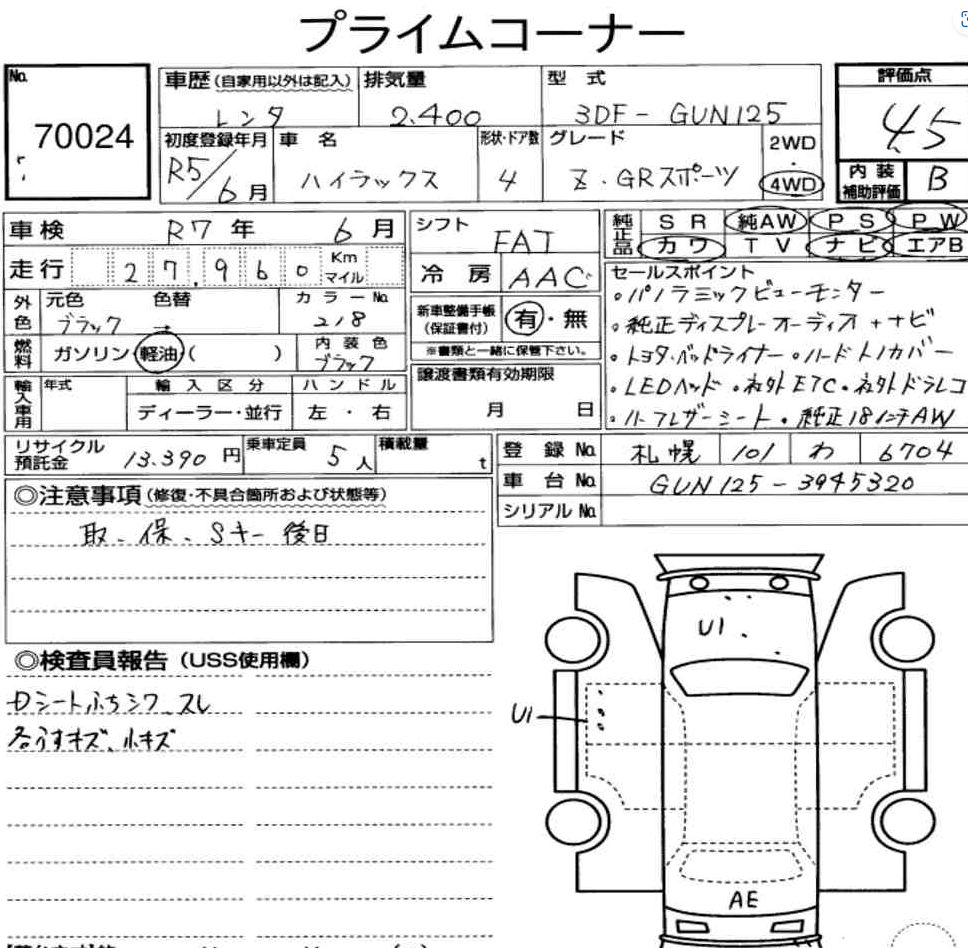 プライムコーナー
No.
70024
車歴(自家用以外は記入) 排気量 型式
レンタ 2.400 3DF-GUN125
初度登録年月 車名 形状・ドア数 グレード 2WD
・
R5/6月 ハイラックス 4 Z.GRスポーツ 4WD
評価点
4.5
内装
補助評価 B
車検 R7年 6月
走行 27,960 Km
マイル
シフト FAT
冷房 AAC
純正品 SR 純AW PS PW
カワ TV ナビ エアB
外色 元色 色替 カラーNo.
ブラック → 218
燃料 ガソリン・軽油・( ) 内装色
ブラック
新車整備手帳
(保証書付) 有・無
※書類と一緒に保管下さい。
セールスポイント
。パノラミックビューモニター
。純正ディスプレーオーディオ+ナビ
。トヨタ.ベッドライナー。ハードトノカバー
。LEDヘッド.社外ETC.社外ドラレコ
。ハーフレザーシート.純正18インチAW
輸入車用 年式 輸入区分 ハンドル
ディーラー・並行 左・右
譲渡書類有効期限
月 日
リサイクル
預託金 13.390円 乗車定員 5人 積載量 t
登録No. 札幌 101 わ 6704
車台No. GUN125-3945320
シリアルNo.
◎注意事項(修復・不具合箇所および状態等)
取、保、Sキー後日
◎検査員報告(USS使用欄)
Dシートふちシワ、スレ
各うすキズ、小キズ
U1
U1
AE